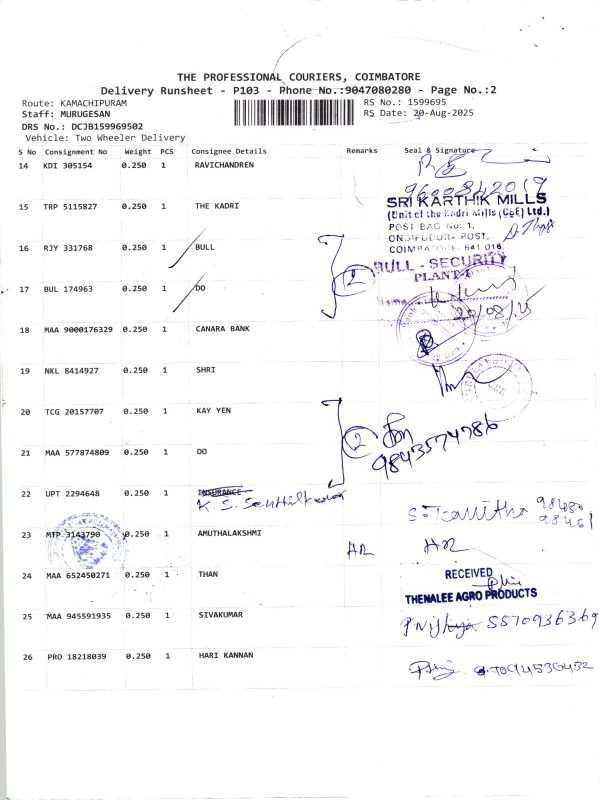 THE PROFESSIONAL COURIERS, COIMBATORE
Delivery Runsheet - P103 - Phone No.:9047080280 - Page No.:2
Route: KAMACHIPURAM
Staff: MURUGESAN
DRS No.: DCJB159969502
Vehicle: Two Wheeler Delivery
RS No.: 1599695
RS Date: 20-Aug-2025
S No Consignment No Weight PCS Consignee Details Remarks Seal & Signature
14 KDI 305154 0.250 1 RAVICHANDREN
9600842019
15 TRP 5115827 0.250 1 THE KADRI
SRI KARTHIK MILLS
(Unit of the Kadri Mills (CBE) Ltd.)
POST BAG No: 1,
ONDIPUDUR- POST,
COIMBATORE- 641 016.
16 RJY 331768 0.250 1 BULL
2
BULL - SECURITY
PLANT-
17 BUL 174963 0.250 1 DO
Name
20/08/25
18 MAA 9000176329 0.250 1 CANARA BANK
19 NKL 8414927 0.250 1 SHRI
20 TCG 20157707 0.250 1 KAY YEN
2
9843574786
21 MAA 577874809 0.250 1 DO
22 UPT 2294648 0.250 1 INSURANCE
K. S. Senthilkumar
23 MTP 3143790 0.250 1 AMUTHALAKSHMI
24 MAA 652450271 0.250 1 THAN
RECEIVED
THENALEE AGRO PRODUCTS
25 MAA 945591935 0.250 1 SIVAKUMAR
8870936369
26 PRO 18218039 0.250 1 HARI KANNAN